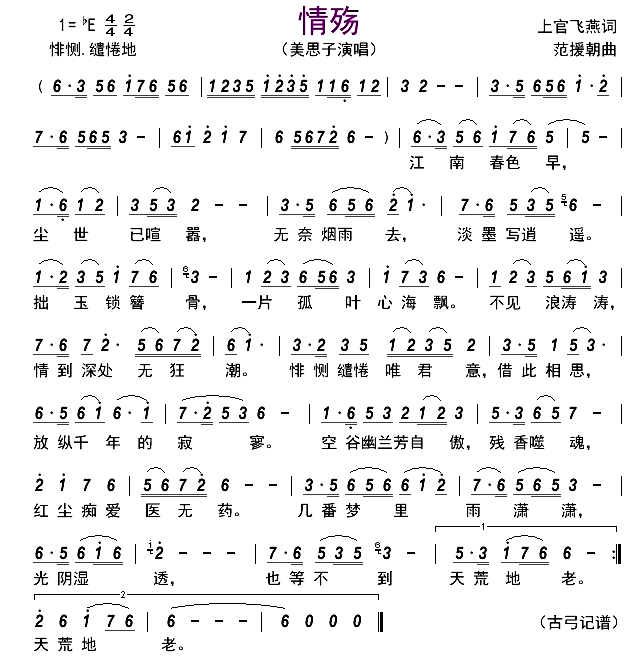 情殇
1=♭E 4/4 2/4
上官飞燕词
悱恻.缱惓地
（美思子演唱）
范援朝曲
( 6·3 56 1̇76 56 | 1235 1̇235 116 12 | 3 2 - - | 3·5 656 1̇·2̇ |
7·6 565 3 - | 61̇ 2̇ 1̇ 7 | 6 5672̇ 6 - ) | 6·3 56 1̇76 5 | 5 - |
江 南 春色 早，
1·6 1 2 | 353 2 - - | 3·5 656 2̇1̇· | 7·6 535 6 - |
尘 世 已喧 嚣， 无 奈 烟雨 去， 淡 墨 写逍 遥。
1·2 35 1̇ 76 | 3 - | 123 653 - | 1̇ 73 6 - | 123 561̇3 |
拙 玉 锁 簪 骨， 一片 孤 叶 心 海 飘。 不见 浪涛 涛，
7·6 72̇ 5672̇ | 61̇· | 3·2 35 1235 2 | 3·5 31 53· |
情 到 深处 无 狂 潮。 悱 恻 缱惓 唯 君 意，借 此 相 思，
6·5 61̇ 6·1̇ | 7·2̇53 6 - | 1·6 53 212 3 | 5·3 65 7 - |
放 纵 千 年 的 寂 寥。 空 谷 幽兰 芳自 傲，残 香 噬 魂，
2̇ 1̇ 7 6 | 5672̇ 6 - | 3·5 656 61̇2̇ | 7·6 565 3 - |
红 尘 痴 爱 医 无 药。 几 番 梦 里 雨 潇 潇，
6·5 61̇6 | 2̇ - - | 7·6 535 3 - | 5·3 1̇76 6 - :|
光 阴 湿 透， 也 等 不 到 天 荒 地 老。
1
2
2̇ 6 1̇ 76 | 6 - - - ‖
（古弓记谱）
天 荒 地 老。